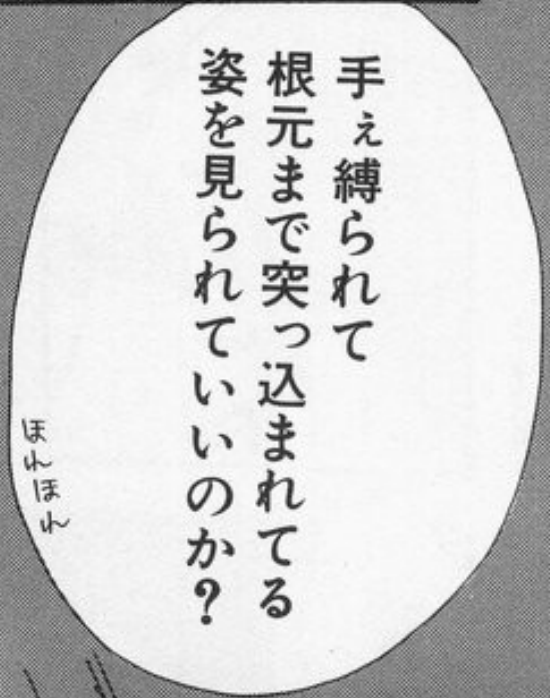 手ぇ縛られて
根元まで突っ込まれてる
姿を見られていいのか?
ほれほれ